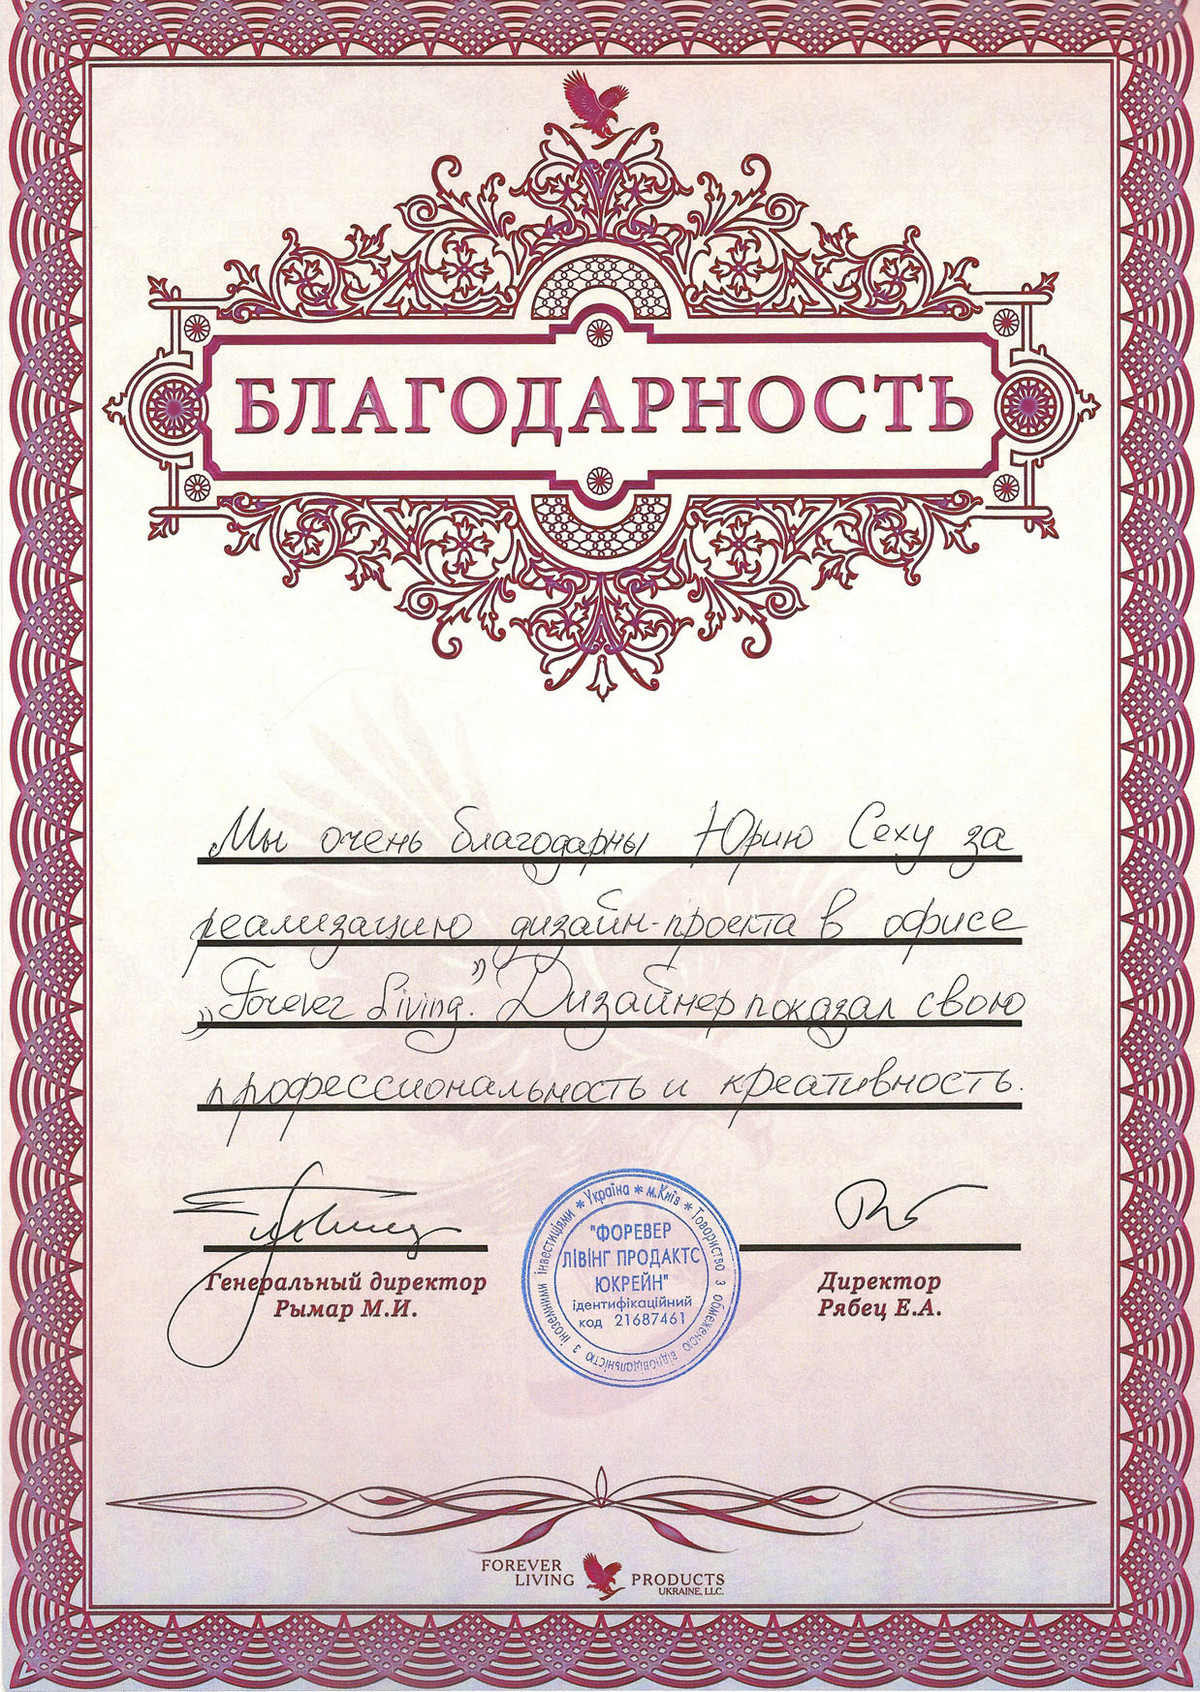 БЛАГОДАРНОСТЬ
Мы очень благодарны Юрию Сеху за
реализацию дизайн-проекта в офисе
„Forever Living.” Дизайнер показал свою
профессиональность и креативность.
Генеральный директор
Рымар М.И.
* Україна * м.Київ * Товариство з обмеженою відповідальністю з іноземними інвестиціями
"ФОРЕВЕР
ЛІВІНГ ПРОДАКТС
ЮКРЕЙН"
ідентифікаційний
код 21687461
Директор
Рябец Е.А.
FOREVER
LIVING PRODUCTS
UKRAINE, LLC.